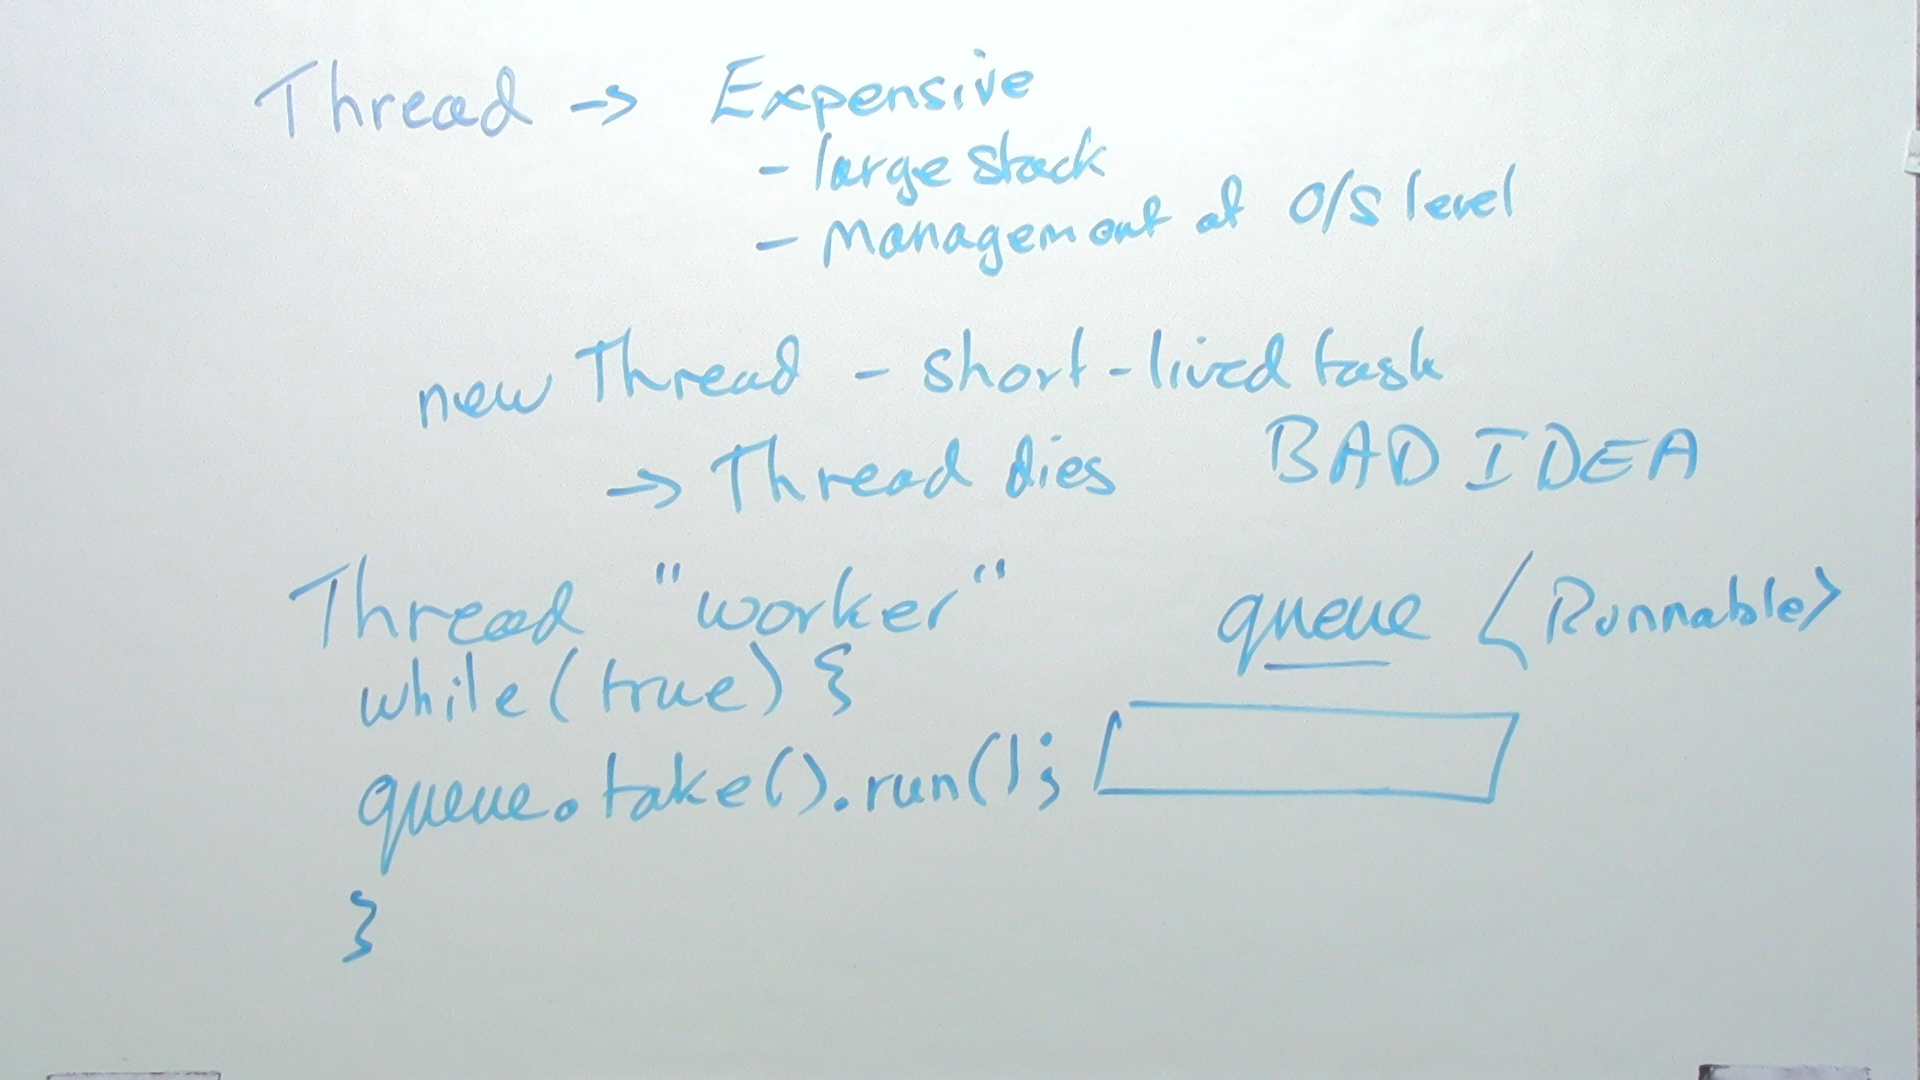 Thread -> Expensive
- large stack
- Management at O/S level
new Thread - short-lived task
-> Thread dies BAD IDEA
Thread "worker" queue <Runnable>
while(true) {
queue.take().run();
}